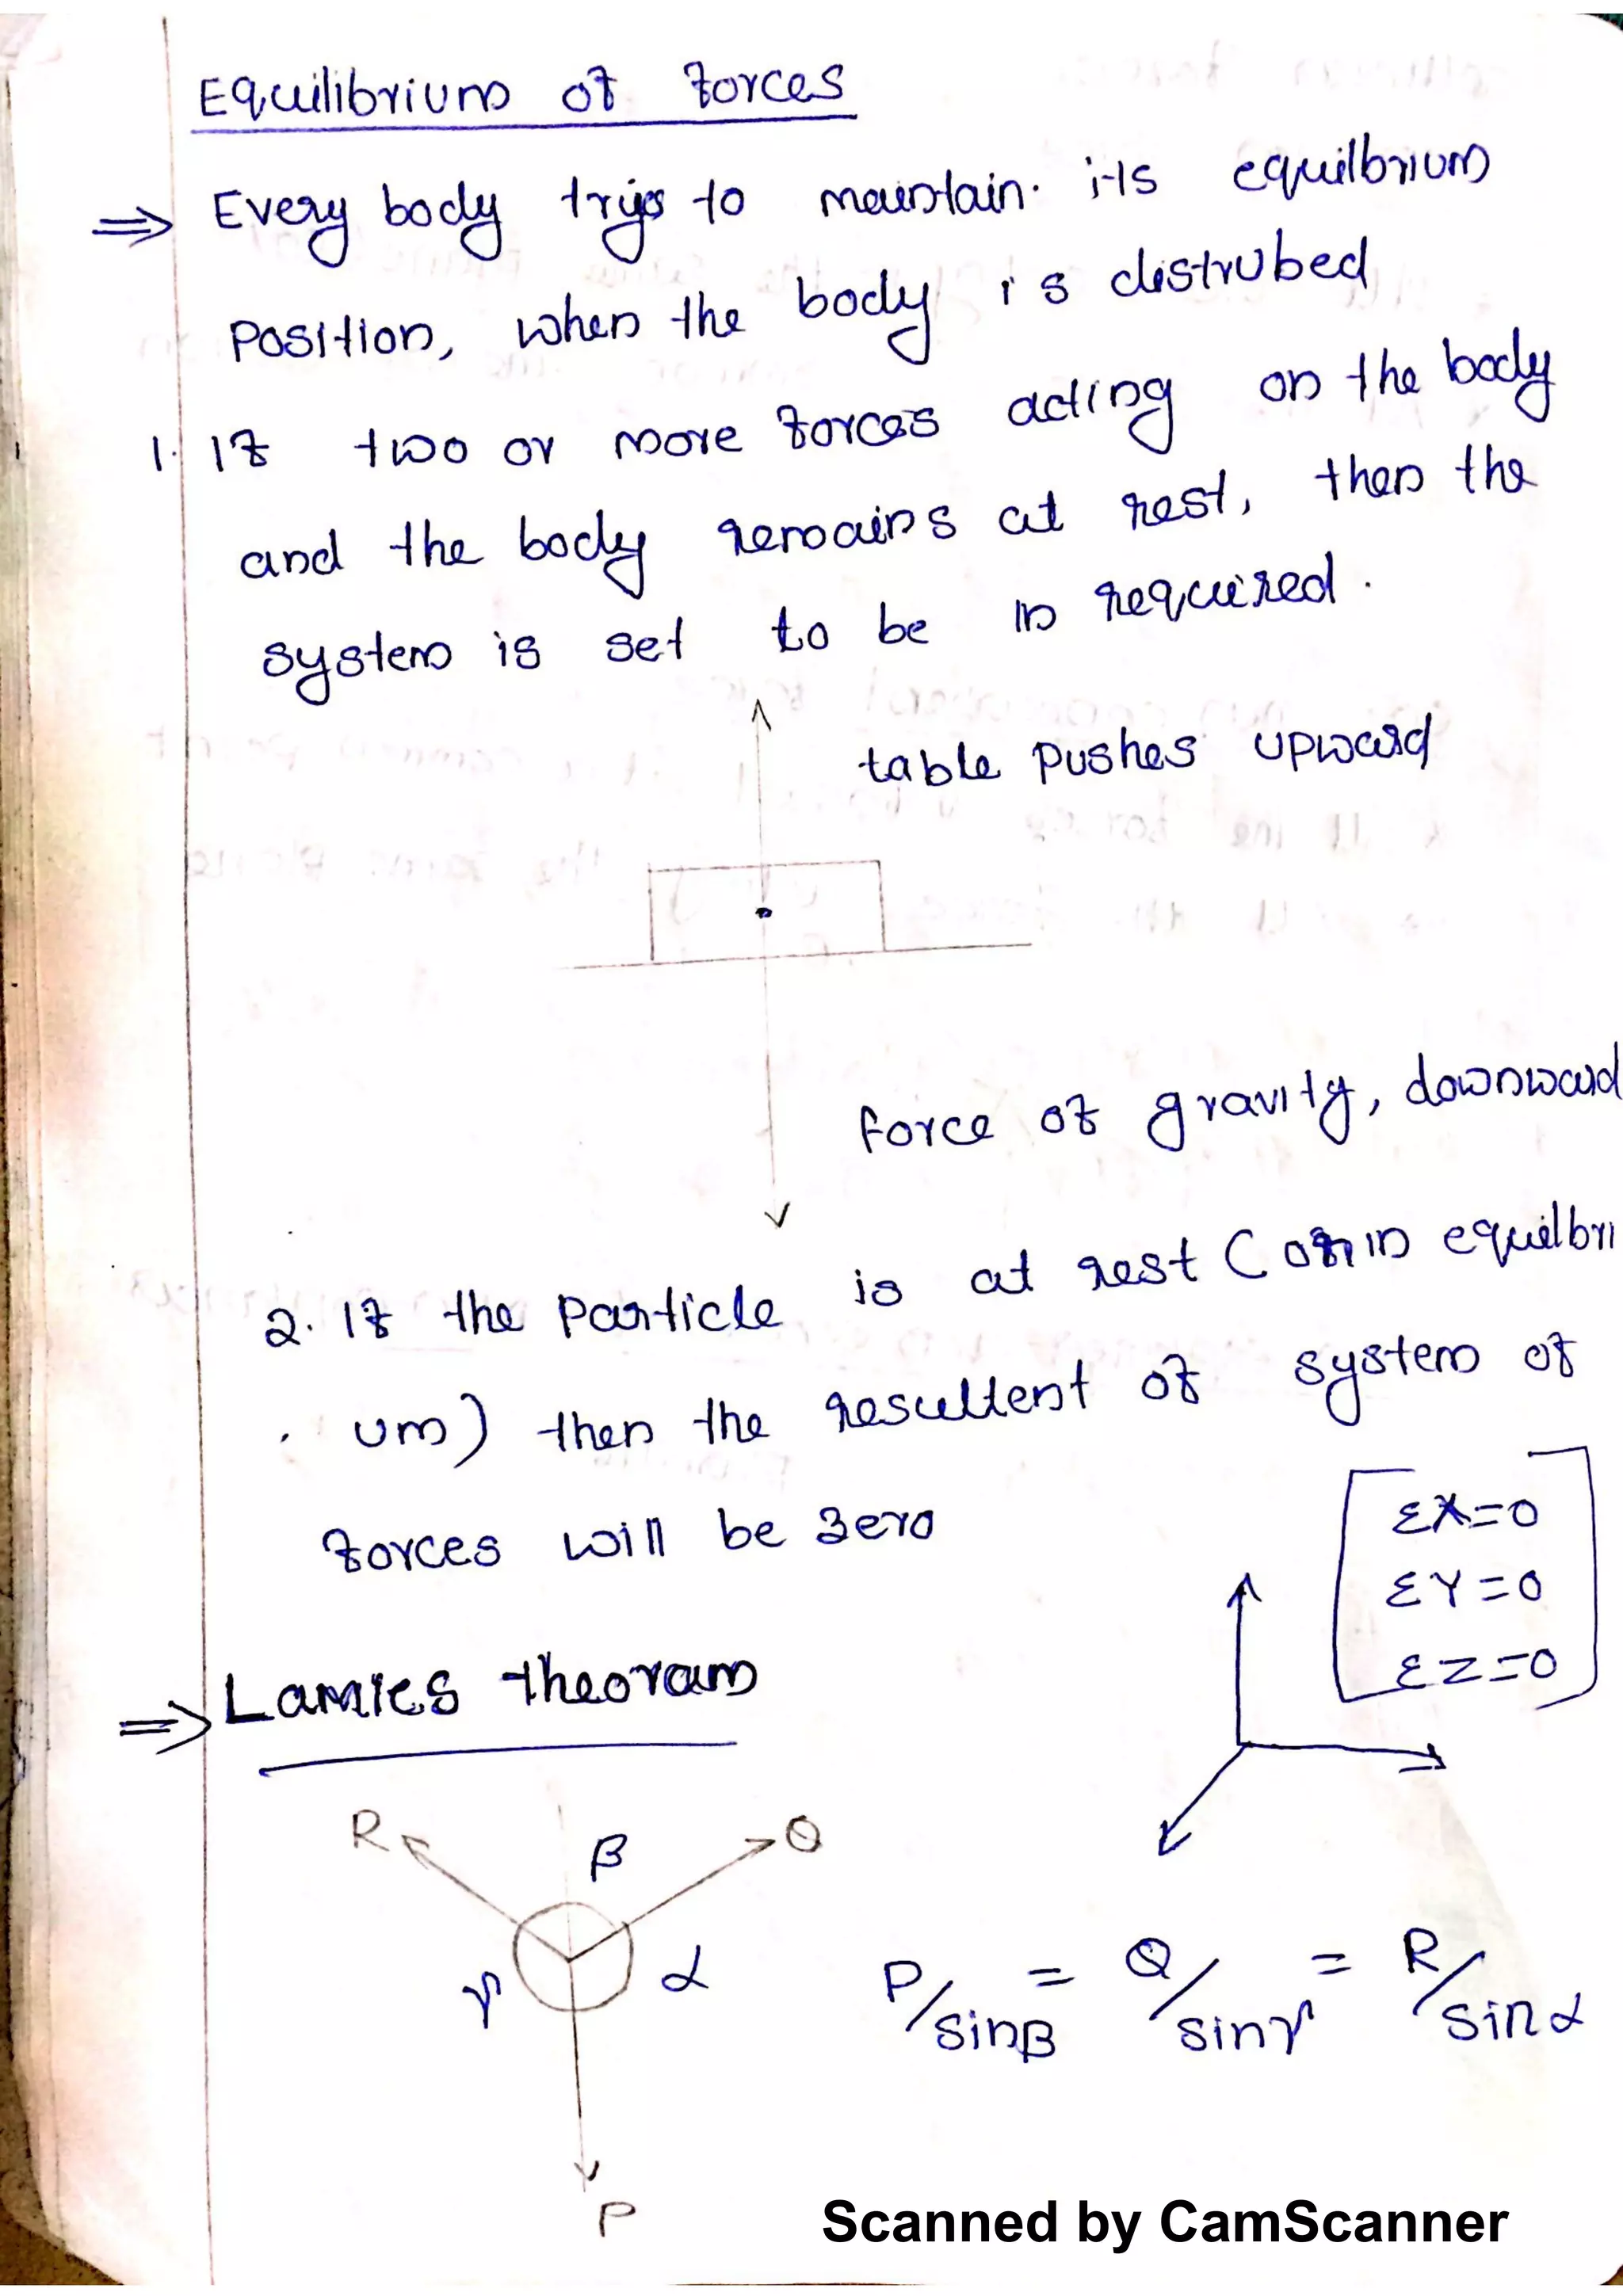 Equilibrium of forces
⇒ Every body trys to maintain. its equilbrium
Position, when the body is distrubed
1. If two or more forces acting on the body
and the body remains at rest, then the
system is set to be in required.
table pushes upward
force of gravity, downward
2. If the particle is at rest ( or in equilbri
um) then the resultent of system of
forces will be zero
ΣX=0
ΣY=0
ΣZ=0
⇒ Lamies theoram
R β Q
γ α
P/sinβ = Q/sinγ = R/sinα
P
Scanned by CamScanner